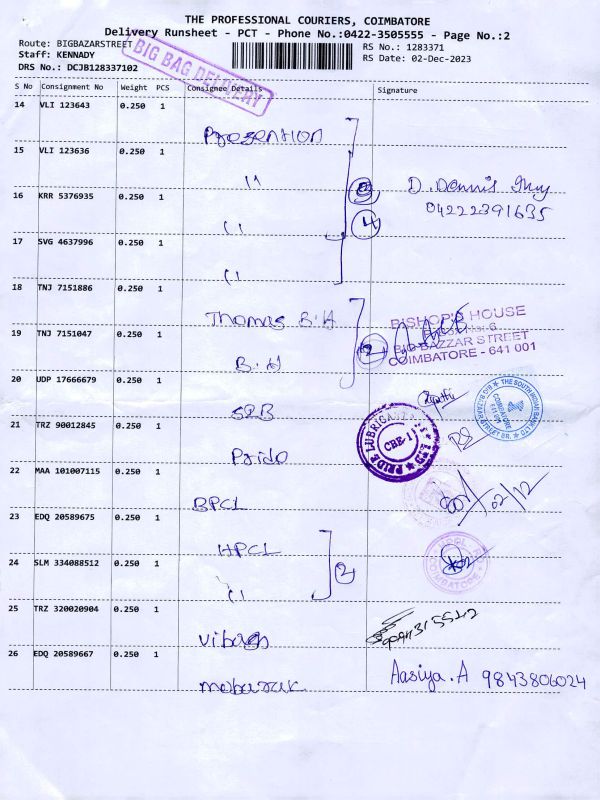 THE PROFESSIONAL COURIERS, COIMBATORE
Delivery Runsheet - PCT - Phone No.:0422-3505555 - Page No.:2
Route: BIGBAZARSTREET
RS No.: 1283371
Staff: KENNADY
RS Date: 02-Dec-2023
DRS No.: DCJB128337102
BIG BAG DELIVERY
S No Consignment No Weight PCS Consignee Details Signature
14 VLI 123643 0.250 1
Presention
15 VLI 123636 0.250 1
"
D. Dennis
04222391635
16 KRR 5376935 0.250 1
"
4
17 SVG 4637996 0.250 1
"
18 TNJ 7151886 0.250 1
Thomas B.H
BISHOP'S HOUSE
BIG BAZZAR STREET
COIMBATORE - 641 001
19 TNJ 7151047 0.250 1
B.H
2
20 UDP 17666679 0.250 1
SIB
THE SOUTH INDIAN BANK LTD
BIG BAZAAR STREET BR.
COIMBATORE
641 001
21 TRZ 90012845 0.250 1
Pride
PRIDE LUBRICANTS LTD
CBE-1
22 MAA 101007115 0.250 1
BPCL
02/12
23 EDQ 20589675 0.250 1
HPCL
COIMBATORE
24 SLM 334088512 0.250 1
"
2
25 TRZ 320020904 0.250 1
vibags
26 EDQ 20589667 0.250 1
mobarak
Aasiya.A 9843806024